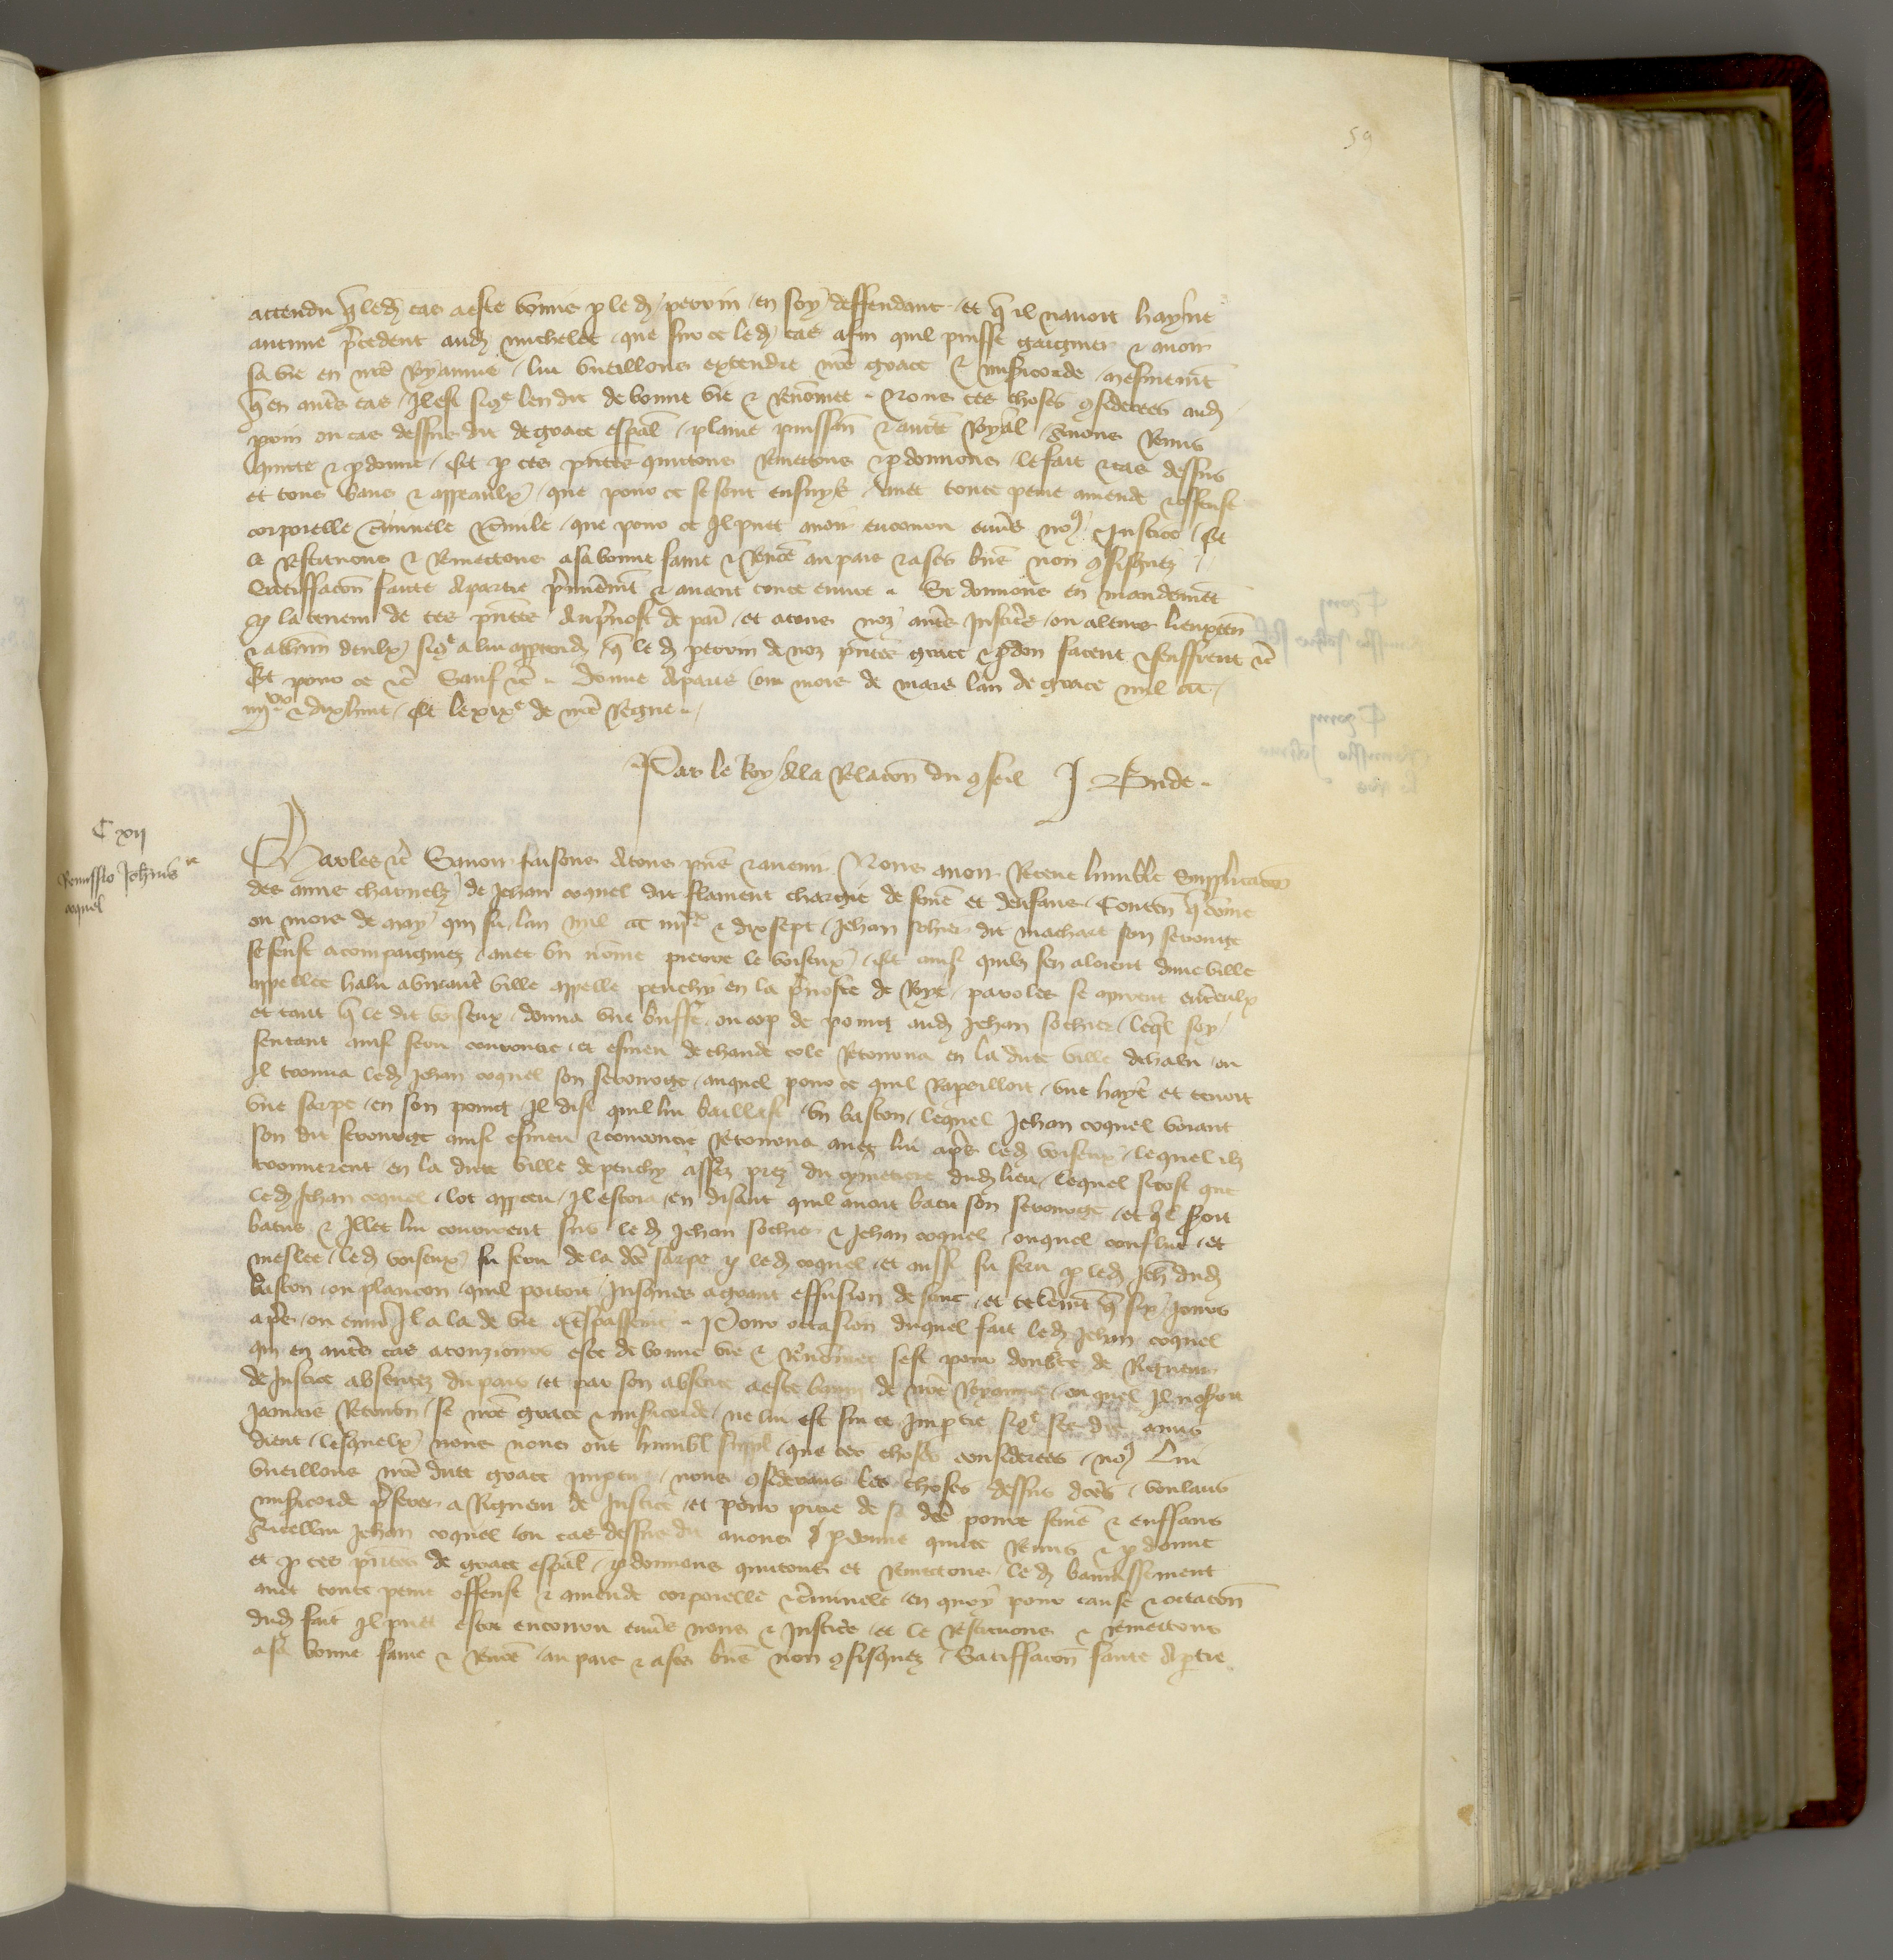 59
attendu q̃ led cas a este venus p led perrin en soy deffendant et q̃ il navoit hayne
aucune p̃cedent aud michelet que pour ce led cas afin quil puisse gaigner & avoir
sa vie en nr̃e Royaume lui vueillons extendre nr̃e grace & mis̃icorde mesmemt̃
q̃ en autr̃s cas il est si q̃ len dit de bonne vie & Renõmee Nous ces choses 9siderees aud
prrin ou cas dessus dit de grace esp̃al plaine puissan̄ & aucte Royal avons Remis
quitte & p donne Et p ces pñtes quittons Remettons & p donnons le fait & cas dessus
et tous bans & appeaulx que pour ce se sont ensuyz avec toute peine amende & offense
corporelle c̃iminele & civile que pour ce il puet avoir encouru env̄s no9 & Justice Et
le Restituons & Remettons a sa bonne fame & Renõe au pais & a ses biẽs non 9fisquez
Satiffacc̃on faicte a partie p̃mieremt̃ & avant toute euvre Si donnons en mandemẽt
p la teneur de ces pñtes Au p̃vost de par̃ et a tous noz autr̃s Justic̃s ou a leurs lieuxten̄
& a chũn deulx si q̃ a lui append̃ q̃ led perrin de noz pñtes grace & p don facent & seuffrent &c̃
Et pour ce &c̃ Sauf &c̃ Donne a paris ou mois de mars lan de grace mil ccc
iiijxx & dix huit Et le xixe de nr̃e Regne
Par le Roy a la Relacõn du 9seil J. Bude
C xij
Remissio Johannis
coquel
Charles &c̃ Savoir faisons a tous pñs & avenir Nous avoir Receue humble Supplicacõn
des amis charnelz de Jehan coquel dit flament chargie de fem̃e et denfans Conten̄ q̃ cõme
ou mois de may qui fu lan mil ccc iiijxx & dix sept Jehan sohier dit machart son serourge
se feust acompaigniez avec un nõme pierre le voiseux Et ainsi quilz sen aloient dune ville
appellee halu a une autr̃ ville appelle peuchy en la p̃voste de Roye paroles se mirent entr̃ eulx
et tant q̃ le dit voiseux donna une buffe ou cop de poing aud Jehan sohier leq̃l soy
sentant ainsi feru courroucie et esmeu de chaude cole Retourna en la dicte ville de halu ou
il trouva led Jehan coquel son serourge auquel pour ce quil Rapareilloit une haye et tenoit
une sarpe en son poing il dist quil lui baillast un baston lequel Jehan coquel voiant
son dit serourge ainsi esmeu & courroucie Retourna avec lui apr̃s led voiseux lequel ilz
trouverent en la dicte ville de peuchy assez prez du cymetiere dud lieu lequel si tost que
led Jehan coquel lot apperceu il escria en disant quil avoit batu son serourge et q̃l s̃oit
batus & illec lui coururent sus led Jehan sohier & Jehan coquel ouquel conflict et
meslee led voiseux fu feru de la dc̃e sarpe p led coquel et aussi fu feru p led Jeh̃ dud
baston ou plancon quil portoit Jusques a grant effusion de sanc et telemt̃ q̃ six Jours
apr̃s ou environ il ala de vie a t̃spassement Pour occasion duquel fait led Jehan coquel
qui en autr̃s cas a touzjours este de bonne vie & Renõmee sest pour doubte de Rigueur
de Justice absentez du pais et par son absence a este banny de nr̃e Royaume ouquel il noseroit
Jamais Retourn̄ se nr̃e grace & mis̃icorde ne lui est sur ce impartie si q̃ ses diz amis
dient lesquelx nous nous ont humbl̃ suppl̃ que ces choses considerees no9 Lui
vueillons nr̃e dicte grace impartir nous 9siderans les choses dessus dc̃es voulans
mis̃icorde p̃ferer a Rigueur de Justice et pour pitie de sa dc̃e povre fem̃e & enffans
A icellui Jehan coquel ou cas dessus dit avons p donne quitte Remis & p donne
et p ces pñtes de grace esp̃al p donnons quittons et Remettons led bannissement
avec toute peine offense & amende corporelle & c̃iminele en quoy pour cause & occacõn
dud fait il puet estre encouru env̄s nous & Justice et le Restituons & Remettons
a sa bonne fame & Renõe au pais & a ses biẽs non 9fisquez Satiffacõn faicte a p̃tie